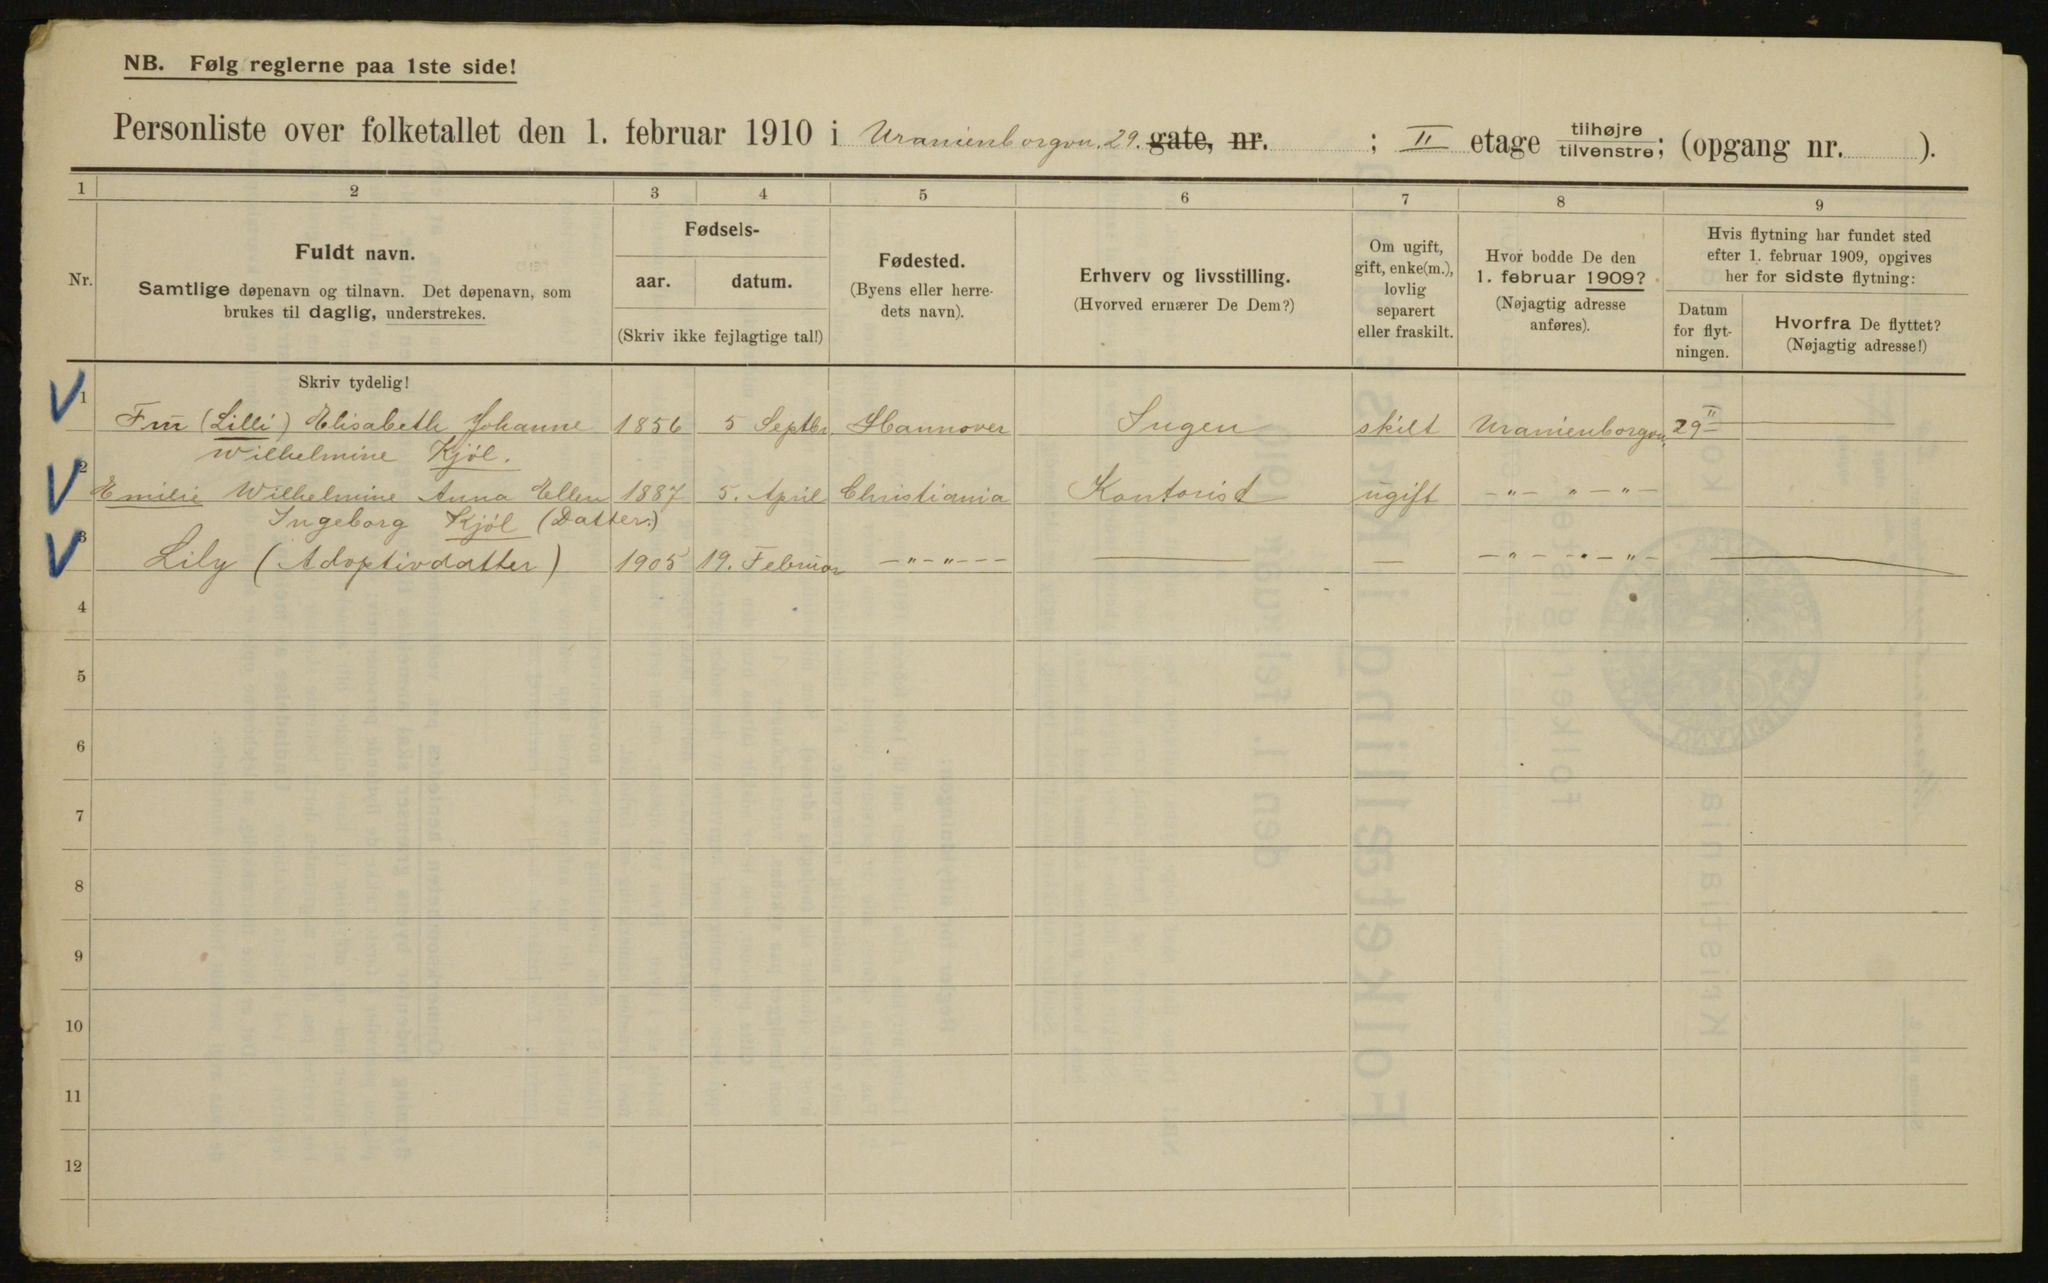 NB. Følg reglerne paa 1ste side!
Personliste over folketallet den 1. februar 1910 i Uranienborgvn. 29. gate, nr. ; II etage tilhøjre tilvenstre; (opgang nr. ).
1 2 3 4 5 6 7 8 9
Nr.
Fuldt navn.
Samtlige døpenavn og tilnavn. Det døpenavn, som
brukes til daglig, understrekes.
Fødsels-
aar. datum.
(Skriv ikke fejlagtige tal!)
Fødested.
(Byens eller herre-
dets navn).
Erhverv og livsstilling.
(Hvorved ernærer De Dem?)
Om ugift,
gift, enke(m.),
lovlig
separert
eller fraskilt.
Hvor bodde De den
1. februar 1909?
(Nøjagtig adresse
anføres).
Hvis flytning har fundet sted
efter 1. februar 1909, opgives
her for sidste flytning:
Datum
for flyt-
ningen.
Hvorfra De flyttet?
(Nøjagtig adresse!)
Skriv tydelig!
1 Fru (Lilli) Elisabeth Johanne 1856 5 Septbr. Hannover Ingen skilt Uranienborgvn. 29 II
Wilhelmine Kjöl.
2 Emilie Wilhelmine Anna Ellen 1887 5. April Christiania Kontorist ugift —"— " —"—
Ingeborg Kjöl (Datter.)
3 Lily (Adoptivdatter) 1905 19. Februar —"—"—— — — —"— " —"— —
4
5
6
7
8
9
10
11
12